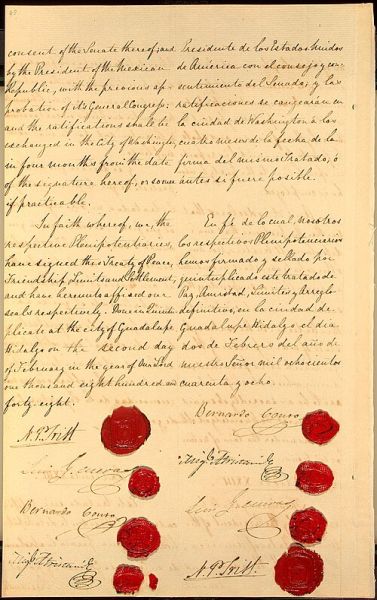 consent of the Senate thereof; and
by the President of the Mexican
Republic, with the previous ap-
probation of its General Congress;
and the ratifications shall be
exchanged in the City of Washington,
in four months from the date
of the signature hereof, or sooner
if practicable.
In faith whereof, we, the
respective Plenipotentiaries,
have signed this Treaty of Peace,
Friendship, Limits and Settlement,
and have hereunto affixed our
seals respectively. Done in Quintu-
plicate at the city of Guadalupe
Hidalgo on the second day
of February in the year of Our Lord
one thousand eight hundred and
forty-eight.
N. P. Trist
Luis G. Cuevas
Bernardo Couto
Migl Atristain
Presidente de los Estados Unidos
de America con el consejo y con-
sentimiento del Senado; y las
ratificaciones se cangearán en
la ciudad de Washington á los
cuatro meses de la fecha de la
firma del mismo Tratado, ó
antes si fuere posible.
En fé de lo cual, nosotros
los respectivos Plenipotenciarios
hemos firmado y sellado por
quintuplicado este tratado de
Paz, Amistad, Límites y Arreglo
definitivo, en la ciudad de
Guadalupe Hidalgo el dia
dos de Febrero del año de
nuestro Señor mil ochocientos
cuarenta y ocho.
Bernardo Couto
Migl Atristain
Luis G. Cuevas
N. P. Trist